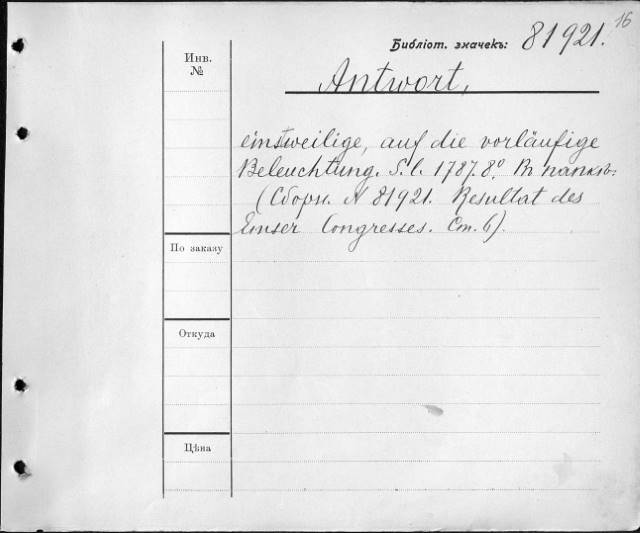 16
Библіот. значекъ: 81921.
Инв.
№
Antwort,
einstweilige, auf die vorläufige
Beleuchtung. S. l. 1787. 8º. Въ папкѣ.
(Сборн. № 81921. Resultat des
Emser Congresses. Ст. 6).
По заказу
Откуда
Цѣна